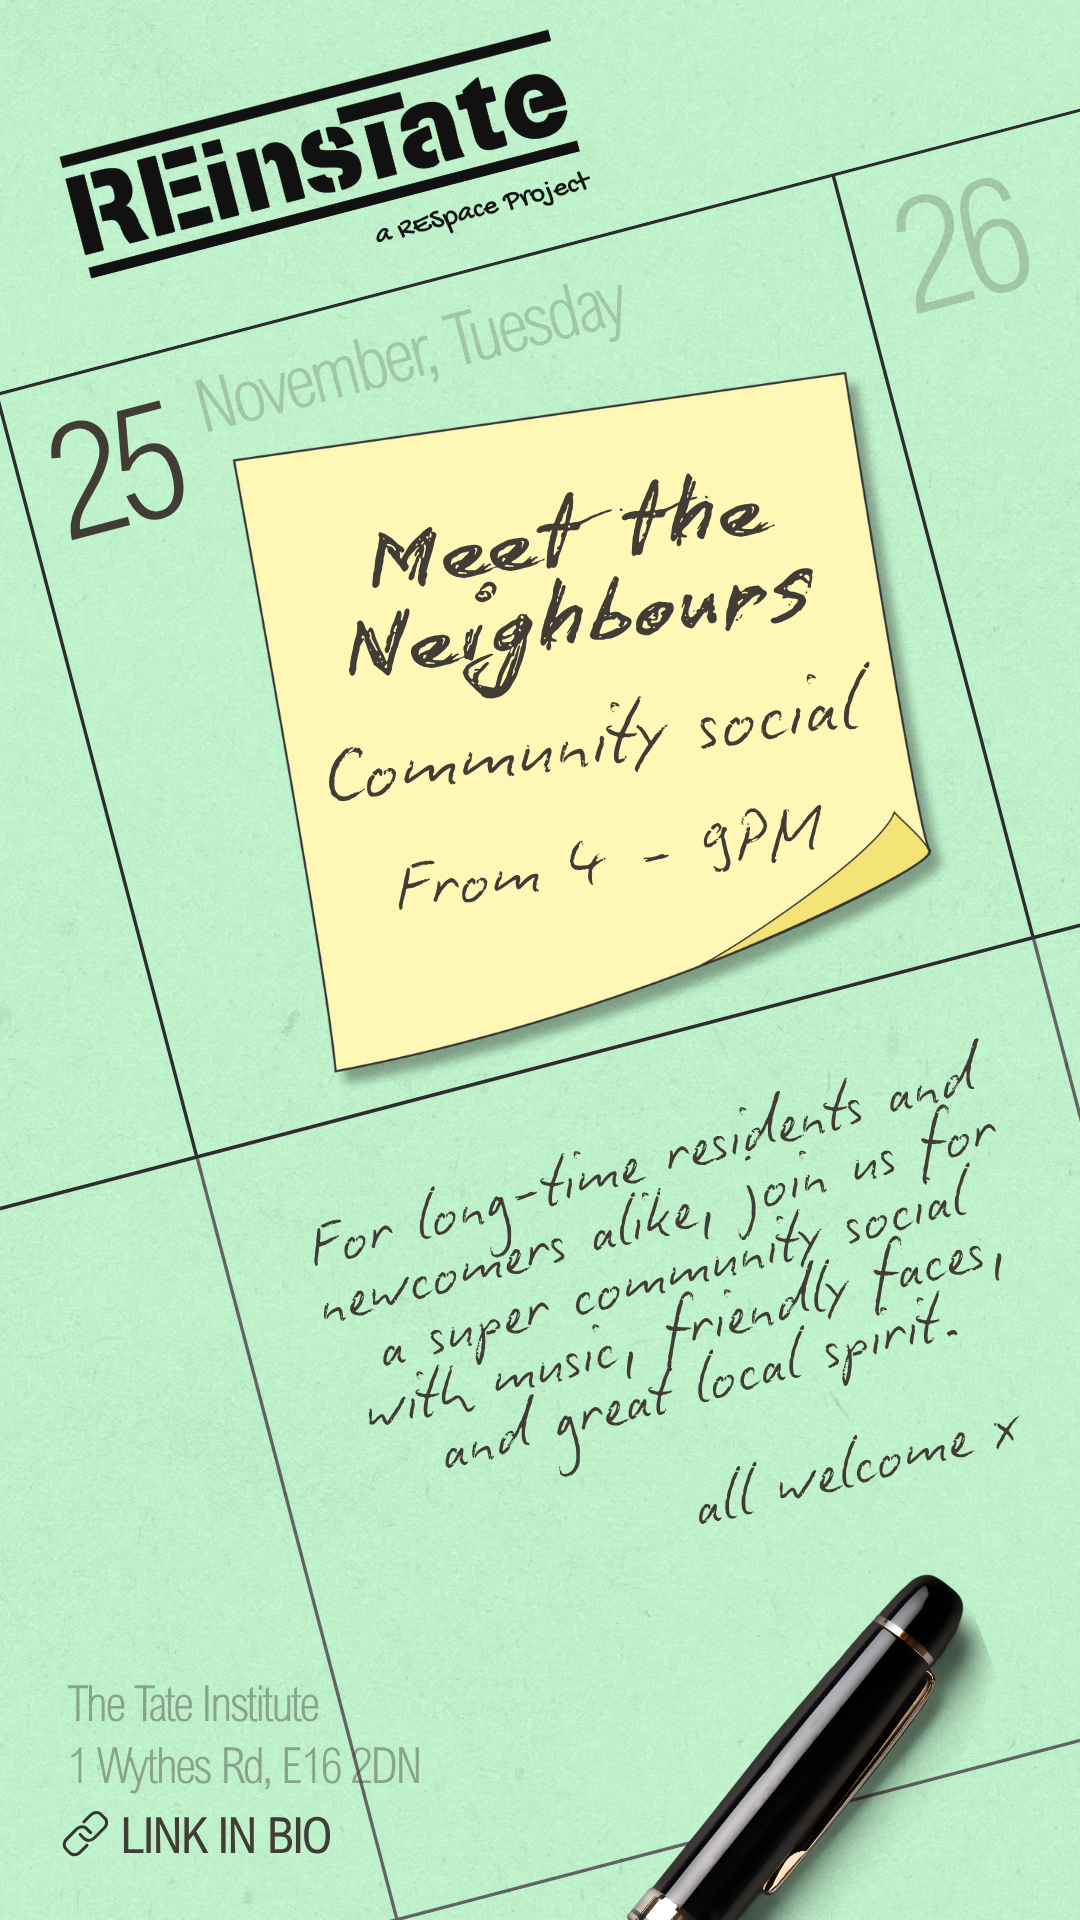 REinsTate
a REspace Project
26
25 November, Tuesday
Meet the
Neighbours
Community social
From 4 - 9PM
For long-time residents and
newcomers alike, join us for
a super community social
with music, friendly faces,
and great local spirit.
all welcome x
The Tate Institute
1 Wythes Rd, E16 2DN
LINK IN BIO